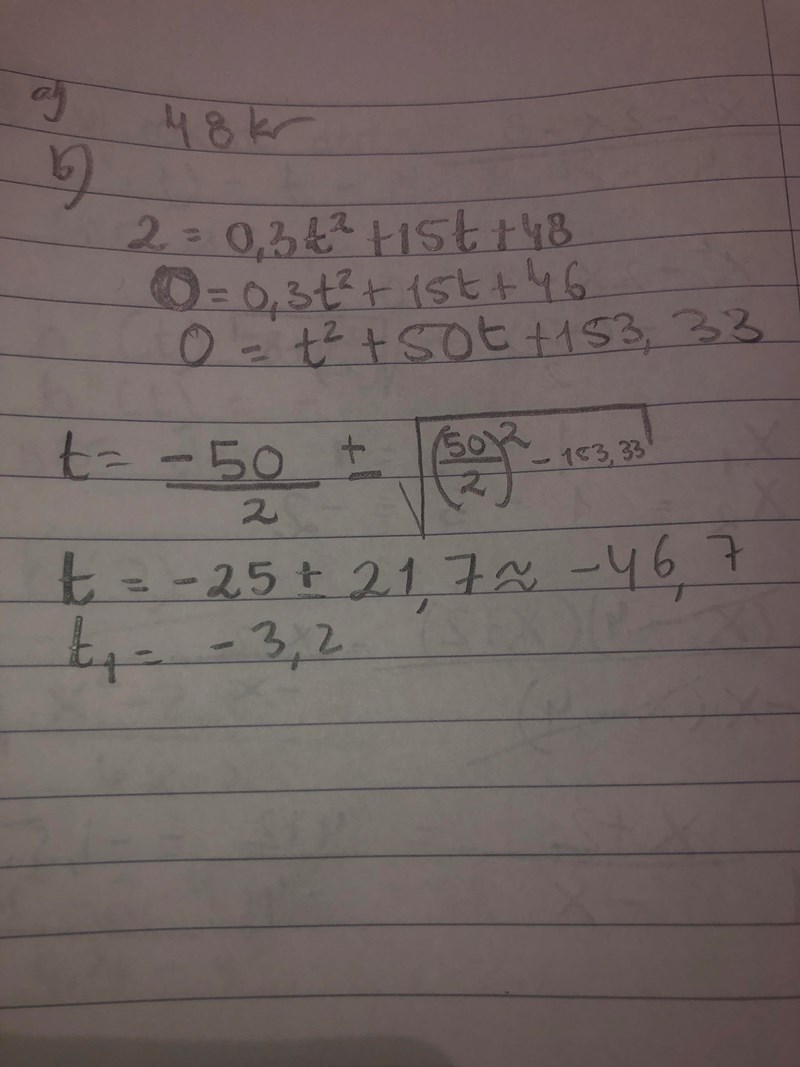 a)
48 kr
b)
2 = 0,3t² + 15t + 48
0 = 0,3t² + 15t + 46
0 = t² + 50t + 153,33
t = -50/2 ± √((50/2)² - 153,33)
t = -25 ± 21,7 ≈ -46,7
t₁ = -3,2